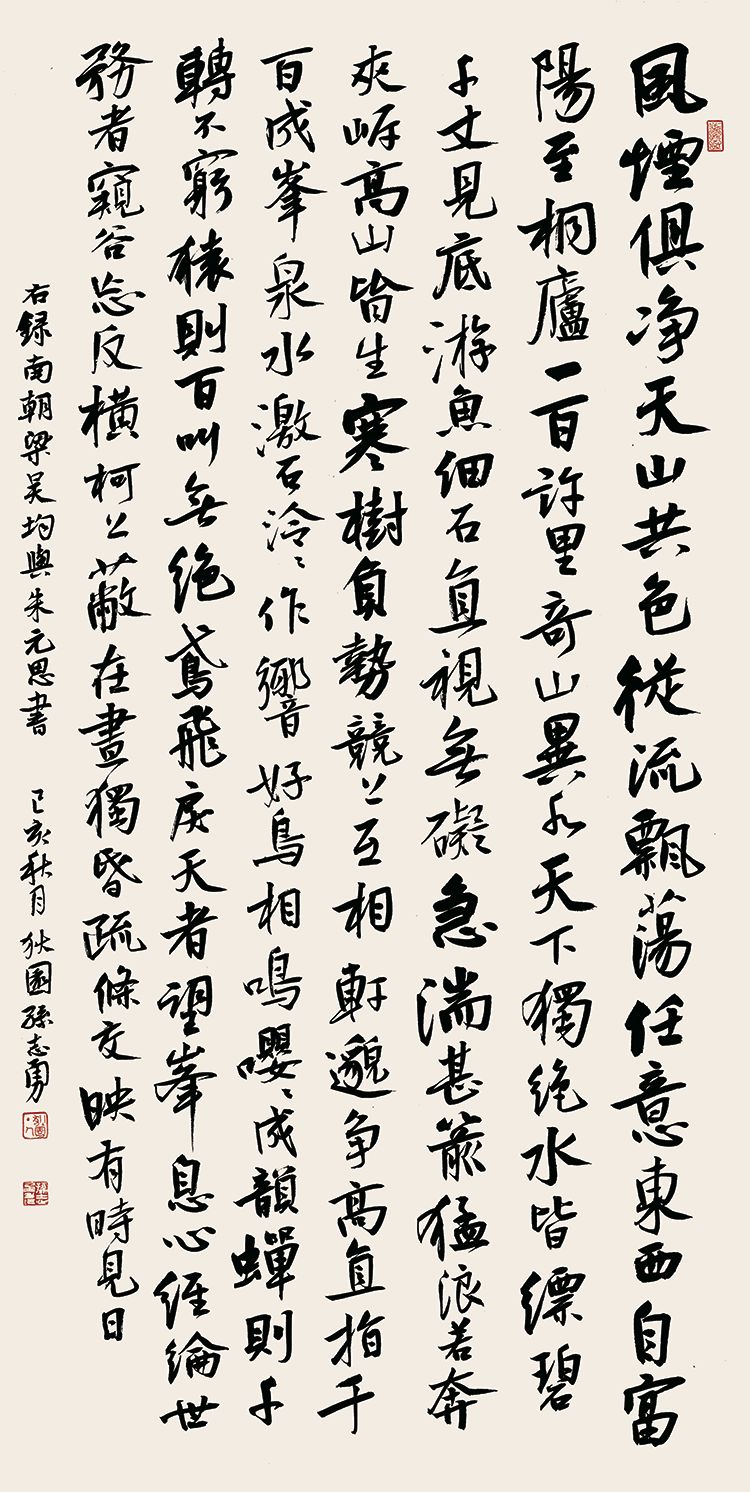 風煙俱净天山共色從流飄蕩任意東西自富
陽至桐廬一百許里奇山異水天下獨絶水皆縹碧
千丈見底游魚細石直視無礙急湍甚箭猛浪若奔
夾岸高山皆生寒樹負勢競上互相軒邈争高直指千
百成峯泉水激石泠〻作響好鳥相鳴嚶〻成韻蟬則千
轉不窮猿則百叫無絶鳶飛戾天者望峯息心經綸世
務者窺谷忘反横柯上蔽在晝獨昏疏條交映有時見日
右録南朝梁吴均與朱元思書 己亥秋月狄園孫志勇